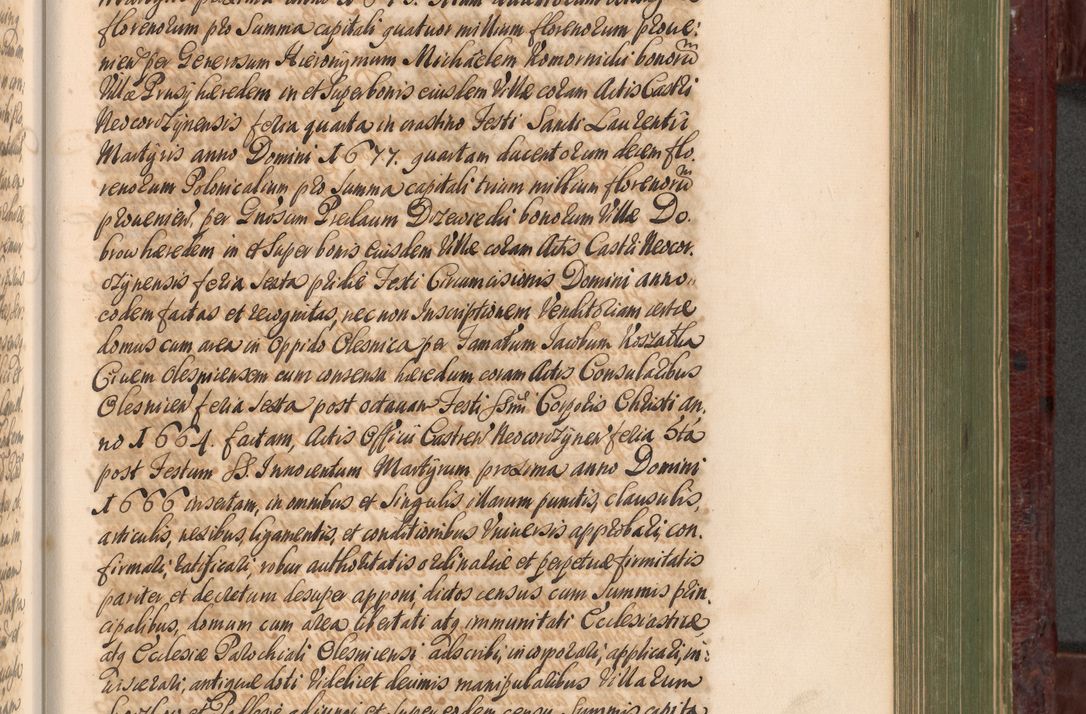 florenorum pro Summa capitali quatuor millium florenorum proue:
nien̄ per Generosum Hieronymum Michaelem Komornicki bonorū
Villæ Prusy hæredem in et super bonis eiusdem Villæ coram Actis Castri
Neocorczynensis feria quarta in crastino Festi Sancti Laurentii
Martyris anno Domini 1677. quartam ducentorum decem flo.
renorum Polonicalium pro summa capitali trium millium florenorū
prouenien̄, per Gnosum Preclaum Drzewiecki bonorum Villæ Do.
brow hæredem in et super bonis eiusdem Villæ coram Actis Castri Neocor.
czynensis feria sexta pridie Festi Circumcisionis Domini anno
eodem factas et recognitas, nec non Inscriptionem Venditoriam certæ
domus cum area in Oppido Olesnica per Famatum Jacobum
Ciuem Olesnicensem cum consensu hæredum coram Actis Consularibus
Olesnicen̄ feria sexta post octauam Festi SSmi Corporis Christi an.
no 1664. factam, Actis Officii Castren̄ Neocorczynen̄ feria 5tá
post Festum SS. Innocentum Martyrum proxima anno Domini
1666 insertam, in omnibus et singulis illarum punctis, clausulis,
articulis, nexibus, ligamentis, et conditionibus Vniuersis approbari, con.
firmari, ratificari, robur authoritatis ordinariæ et perpetuæ firmitatis
pariter, et decretum desuper apponi, dictos census cum summis prin.
cipalibus, domum cum area libertati atq immunitati Ecclesiasticæ
atq Ecclesiæ Parochiali Olesnicensi adscribi, incorporari, applicari, in:
uiscerari, antiquæ doti Videlicet decimis manipularibus Villarum
et adiungi et super eodem censu Summis capita